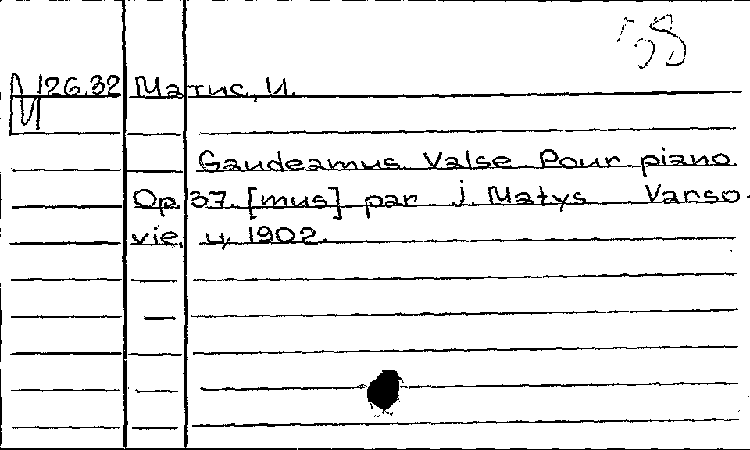 58
М 126.32 Матис, И.
Gaudeamus. Valse Pour piano.
Op. 37. [mus] par J. Matys Varso-
vie, 4, 1902.